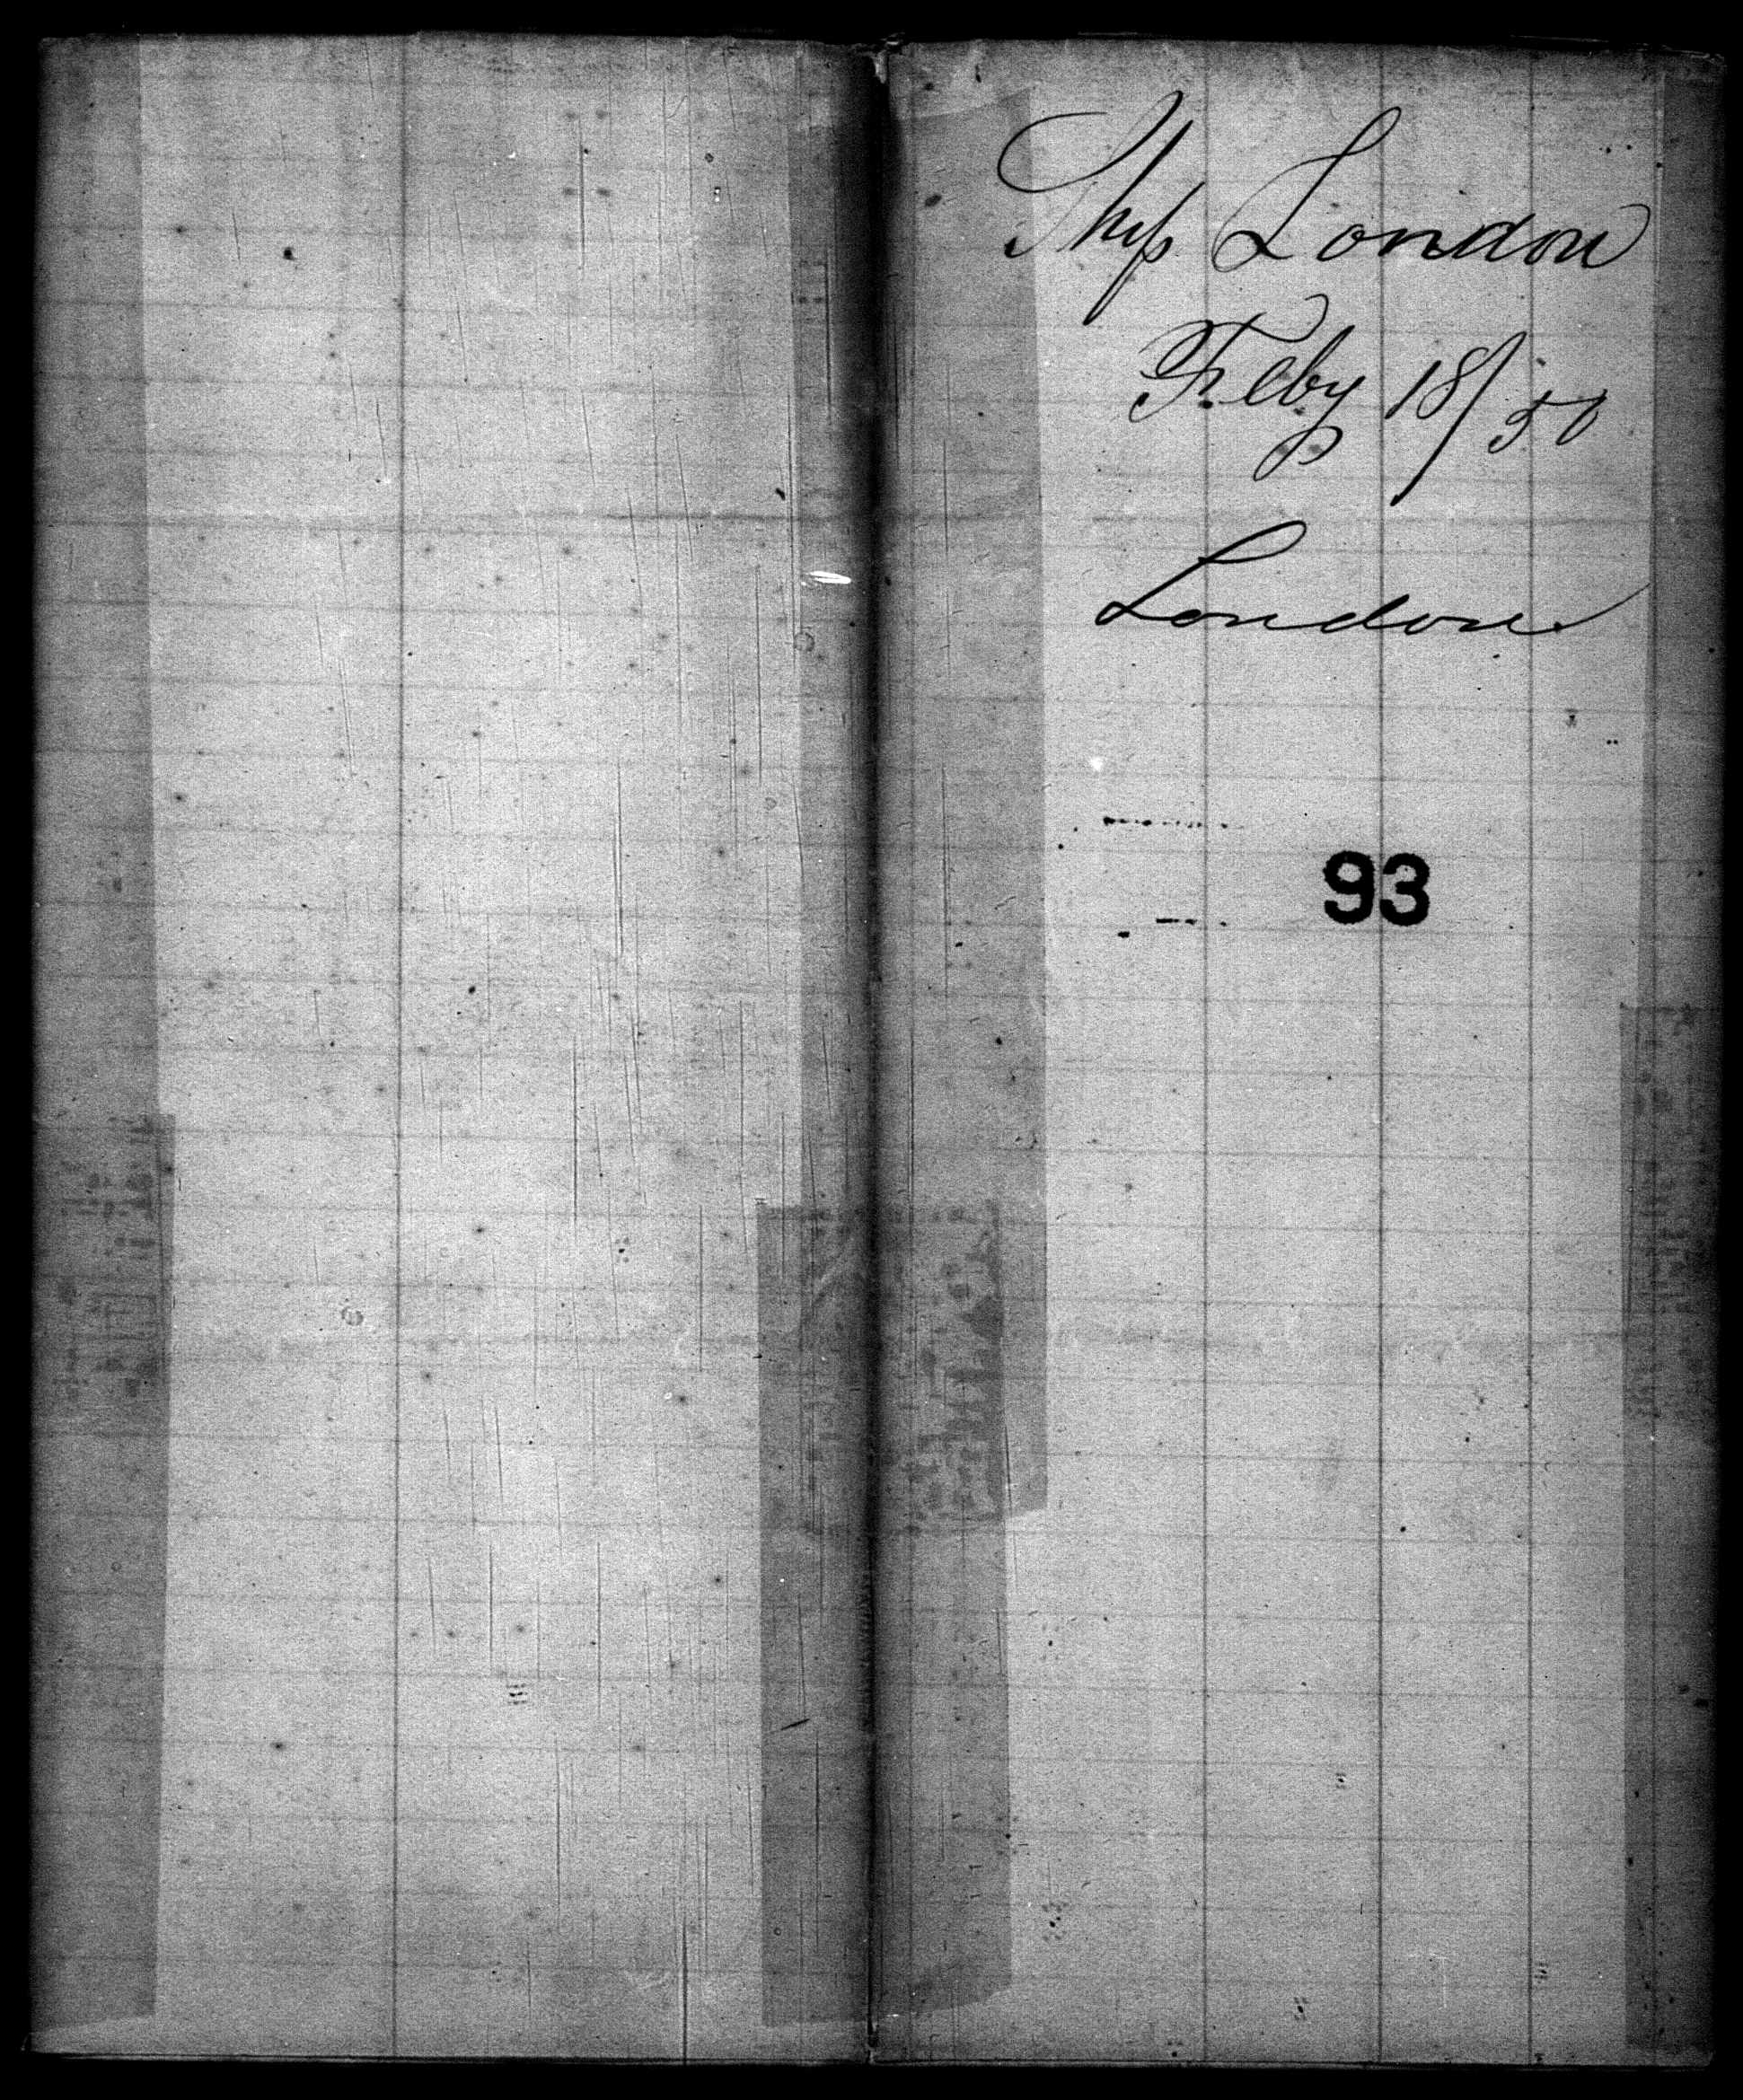 Ship London
Feby 18/50
London
93